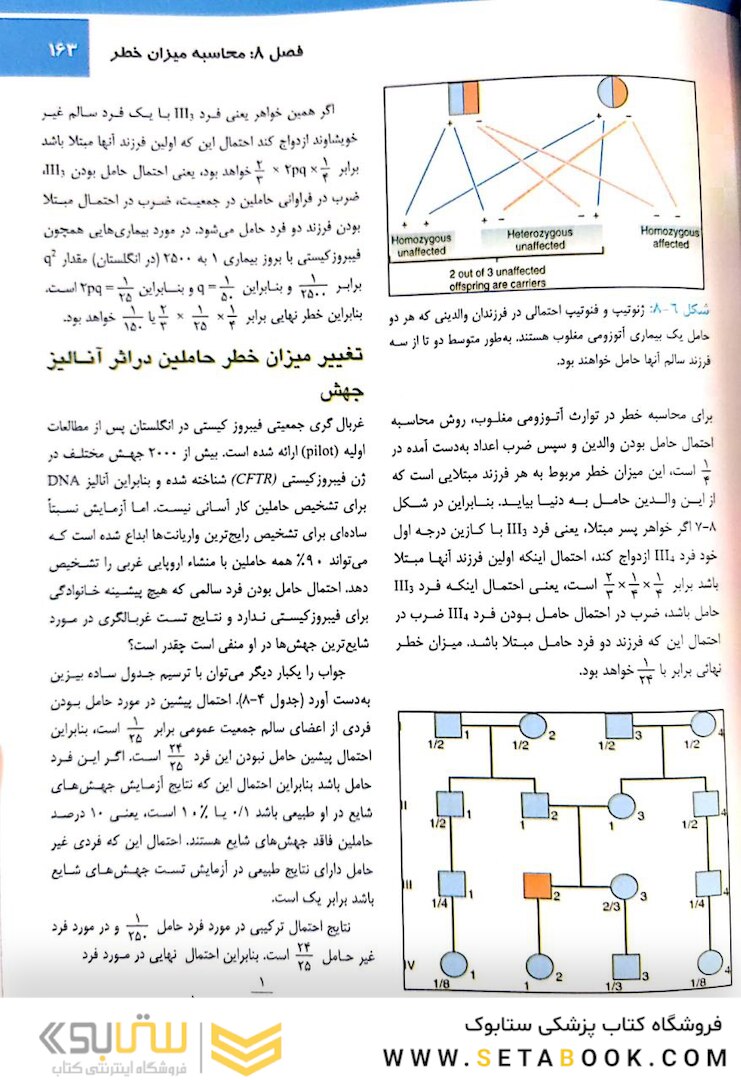 فصل ۸: محاسبه میزان خطر
۱۶۳
+ − + −
+ + + − − + − −
Homozygous
unaffected
Heterozygous
unaffected
Homozygous
affected
2 out of 3 unaffected
offspring are carriers
شکل ۶-۸: ژنوتیپ و فنوتیپ احتمالی در فرزندان والدینی که هر دو
حامل یک بیماری آتوزومی مغلوب هستند. به‌طور متوسط دو تا از سه
فرزند سالم آنها حامل خواهند بود.
برای محاسبه خطر در توارث آتوزومی مغلوب، روش محاسبه
احتمال حامل بودن والدین و سپس ضرب اعداد به‌دست آمده در
۱/۴ است، این میزان خطر مربوط به هر فرزند مبتلایی است که
از این والدین حامل به دنیا بیاید. بنابراین در شکل
۷-۸ اگر خواهر پسر مبتلا، یعنی فرد III₃ با کازین درجه اول
خود فرد III₄ ازدواج کند، احتمال اینکه اولین فرزند آنها مبتلا
باشد برابر ۲/۳ × ۱/۴ × ۱/۴ است، یعنی احتمال اینکه فرد III₃
حامل باشد، ضرب در احتمال حامل بودن فرد III₄ ضرب در
احتمال این که فرزند دو فرد حامل مبتلا باشد. میزان خطر
نهائی برابر با ۱/۲۴ خواهد بود.
I
1/2 1 1/2 2 1/2 3 1/2 4
II
1/2 1 1 2 1 3 1/2 4
III
1/4 1 2 2/3 3 1/4 4
IV
1/8 1 1 2 1/3 3 1/8 4
اگر همین خواهر یعنی فرد III₃ با یک فرد سالم غیر
خویشاوند ازدواج کند احتمال این که اولین فرزند آنها مبتلا باشد
برابر ۲/۳ × ۲pq × ۱/۴ خواهد بود، یعنی احتمال حامل بودن III₃،
ضرب در فراوانی حاملین در جمعیت، ضرب در احتمال مبتلا
بودن فرزند دو فرد حامل می‌شود. در مورد بیماری‌هایی همچون
فیبروزکیستی با بروز بیماری ۱ به ۲۵۰۰ (در انگلستان) مقدار q²
برابر ۱/۲۵۰۰ و بنابراین q = ۱/۵۰ و بنابراین ۲pq = ۱/۲۵ است.
بنابراین خطر نهایی برابر ۲/۳ × ۱/۲۵ × ۱/۴ یا ۱/۱۵۰ خواهد بود.
تغییر میزان خطر حاملین در اثر آنالیز
جهش
غربال گری جمعیتی فیبروز کیستی در انگلستان پس از مطالعات
اولیه (pilot) ارائه شده است. بیش از ۲۰۰۰ جهش مختلف در
ژن فیبروزکیستی (CFTR) شناخته شده و بنابراین آنالیز DNA
برای تشخیص حاملین کار آسانی نیست. اما آزمایش نسبتاً
ساده‌ای برای تشخیص رایج‌ترین واریانت‌ها ابداع شده است که
می‌تواند ۹۰٪ همه حاملین با منشاء اروپایی غربی را تشخیص
دهد. احتمال حامل بودن فرد سالمی که هیچ پیشینه خانوادگی
برای فیبروزکیستی ندارد و نتایج تست غربالگری در مورد
شایع‌ترین جهش‌ها در او منفی است چقدر است؟
جواب را یکبار دیگر می‌توان با ترسیم جدول ساده بیزین
به‌دست آورد (جدول ۴-۸). احتمال پیشین در مورد حامل بودن
فردی از اعضای سالم جمعیت عمومی برابر ۱/۲۵ است، بنابراین
احتمال پیشین حامل نبودن این فرد ۲۴/۲۵ است. اگر این فرد
حامل باشد بنابراین احتمال این که نتایج آزمایش جهش‌های
شایع در او طبیعی باشد ۰/۱ یا ۱۰٪ است، یعنی ۱۰ درصد
حاملین فاقد جهش‌های شایع هستند. احتمال این که فردی غیر
حامل دارای نتایج طبیعی در آزمایش تست جهش‌های شایع
باشد برابر یک است.
نتایج احتمال ترکیبی در مورد فرد حامل ۱/۲۵۰ و در مورد فرد
غیر حامل ۲۴/۲۵ است. بنابراین احتمال نهایی در مورد فرد
۱
فروشگاه کتاب پزشکی ستابوک
WWW.SETABOOK.COM
ستابوک
فروشگاه اینترنتی کتاب